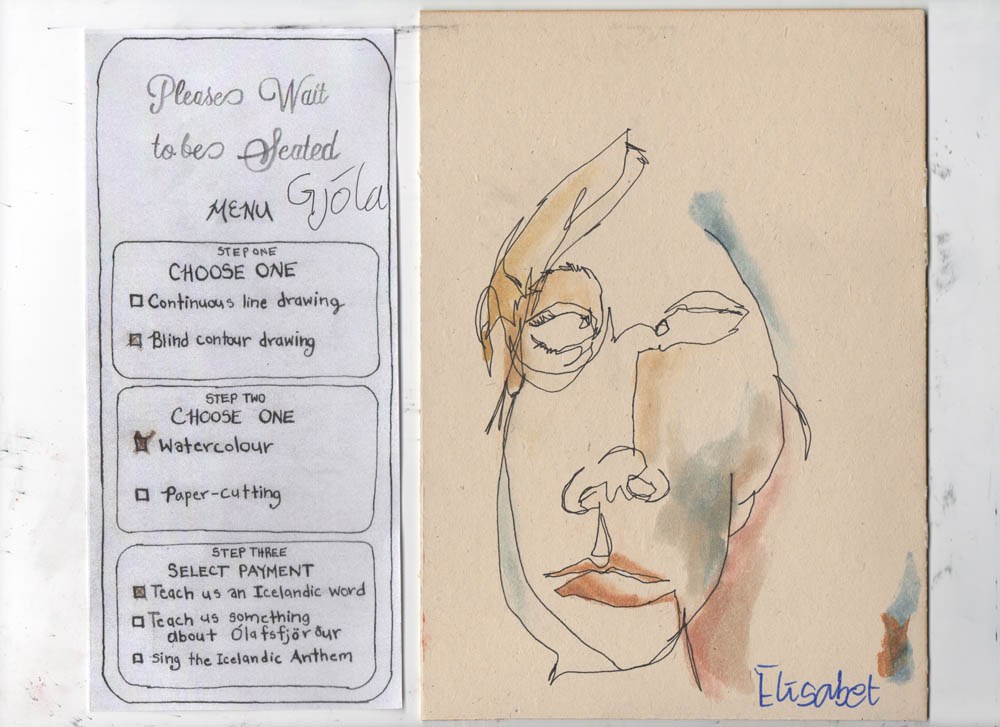 Please Wait
to be Seated
Gjóla
MENU
STEP ONE
CHOOSE ONE
Continuous line drawing
Blind contour drawing
STEP TWO
CHOOSE ONE
Watercolour
Paper-cutting
STEP THREE
SELECT PAYMENT
Teach us an Icelandic word
Teach us something
about Ólafsfjörður
Sing the Icelandic Anthem
Elísabet